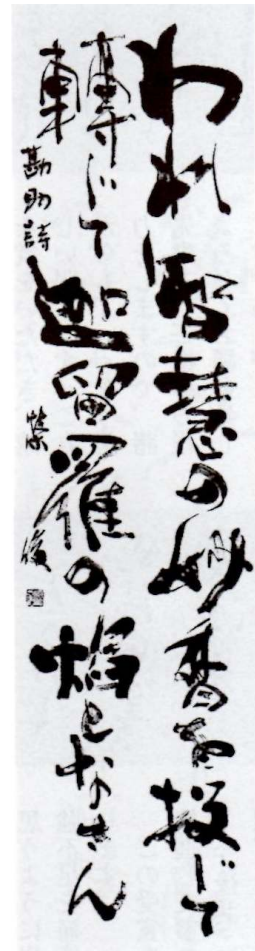 われ智慧の妙香を投じて
轉じて迦留羅の焔となさん
勘助詩